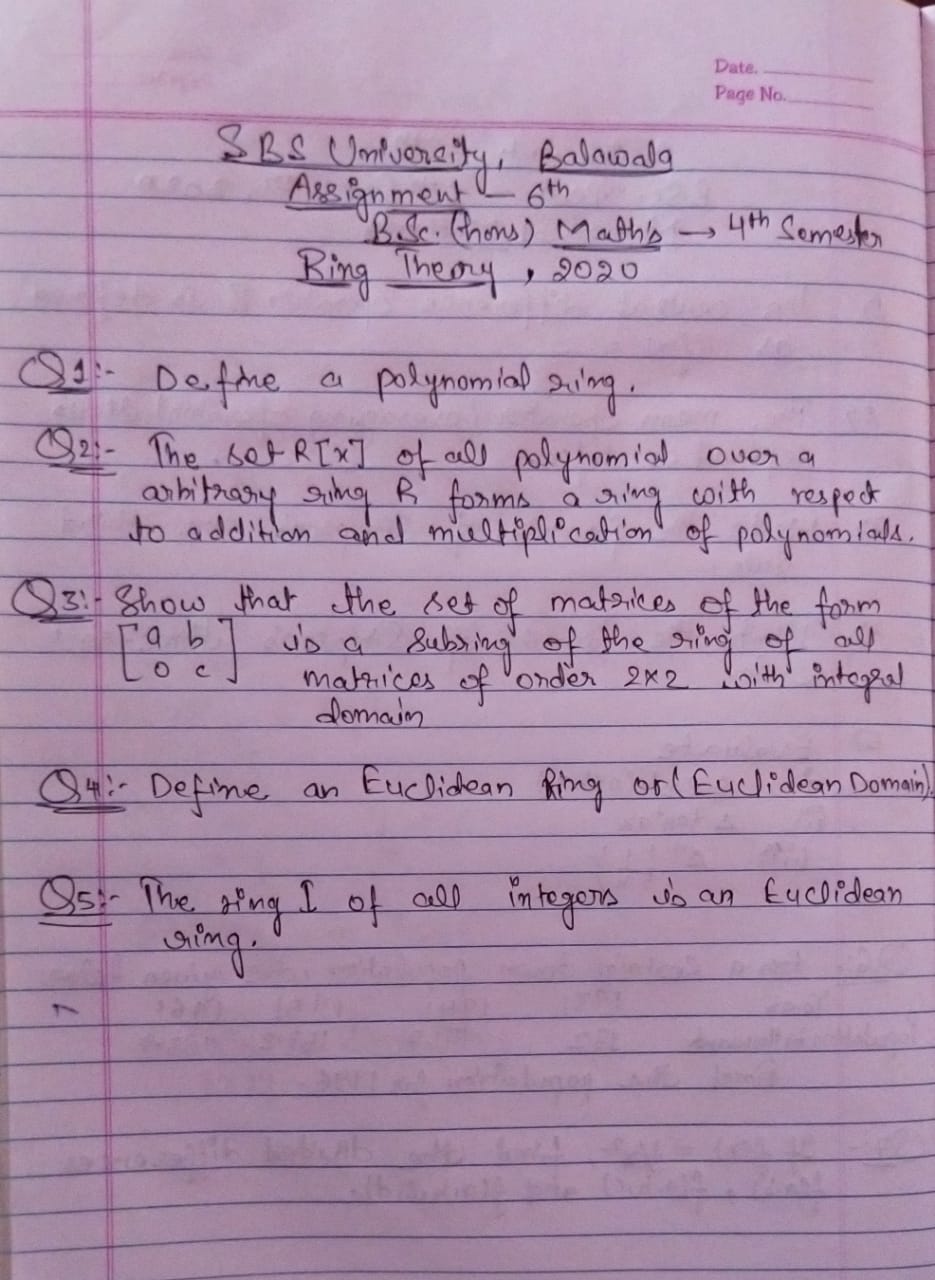 Date.
Page No.
SBS University, Balawala
Assignment - 6th
B.Sc. (hons) Math's → 4th Semester
Ring Theory, 2020
Q1:- Define a polynomial ring.
Q2:- The set R[x] of all polynomial over a
arbitrary ring R forms a ring with respect
to addition and multiplication of polynomials.
Q3:- Show that the set of matrices of the form
[a b
0 c] is a subring of the ring of all
matrices of order 2×2 with integral
domain
Q4:- Define an Euclidean Ring or (Euclidean Domain).
Q5:- The ring I of all integers is an Euclidean
ring.